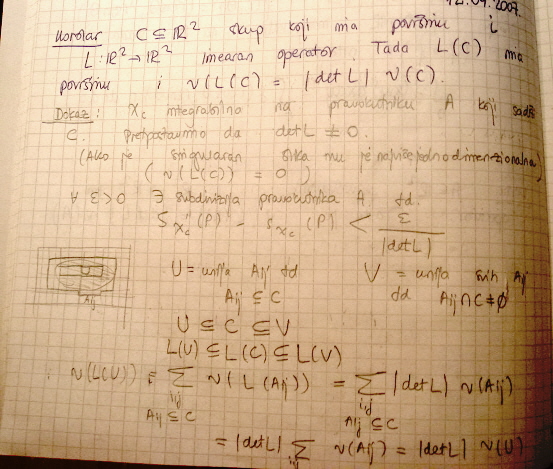 12.04.2007.
Korolar C ⊆ ℝ² skup koji ima površinu i
L: ℝ² → ℝ² linearan operator. Tada L(C) ima
površinu i ν(L(C)) = |det L| ν(C).
Dokaz: χ_C integrabilno na pravokutniku A koji sadži
C. Pretpostavimo da det L ≠ 0.
(Ako je singularan slika mu je najviše jednodimenzionalna)
(ν(L(C)) = 0)
∀ ε>0 ∃ subdivizija pravokutnika A td.
S_χc(P) - s_χc(P) < ε / |det L|
U = unija Aij td V = unija svih Aij
Aij ⊆ C td Aij ∩ C ≠ ∅
Aij
U ⊆ C ⊆ V
L(U) ⊆ L(C) ⊆ L(V)
ν(L(U)) = ∑ ν(L(Aij)) = ∑ |det L| ν(Aij)
i,j i,j
Aij ⊆ C Aij ⊆ C
= |det L| ∑ ν(Aij) = |det L| ν(U)
i,j